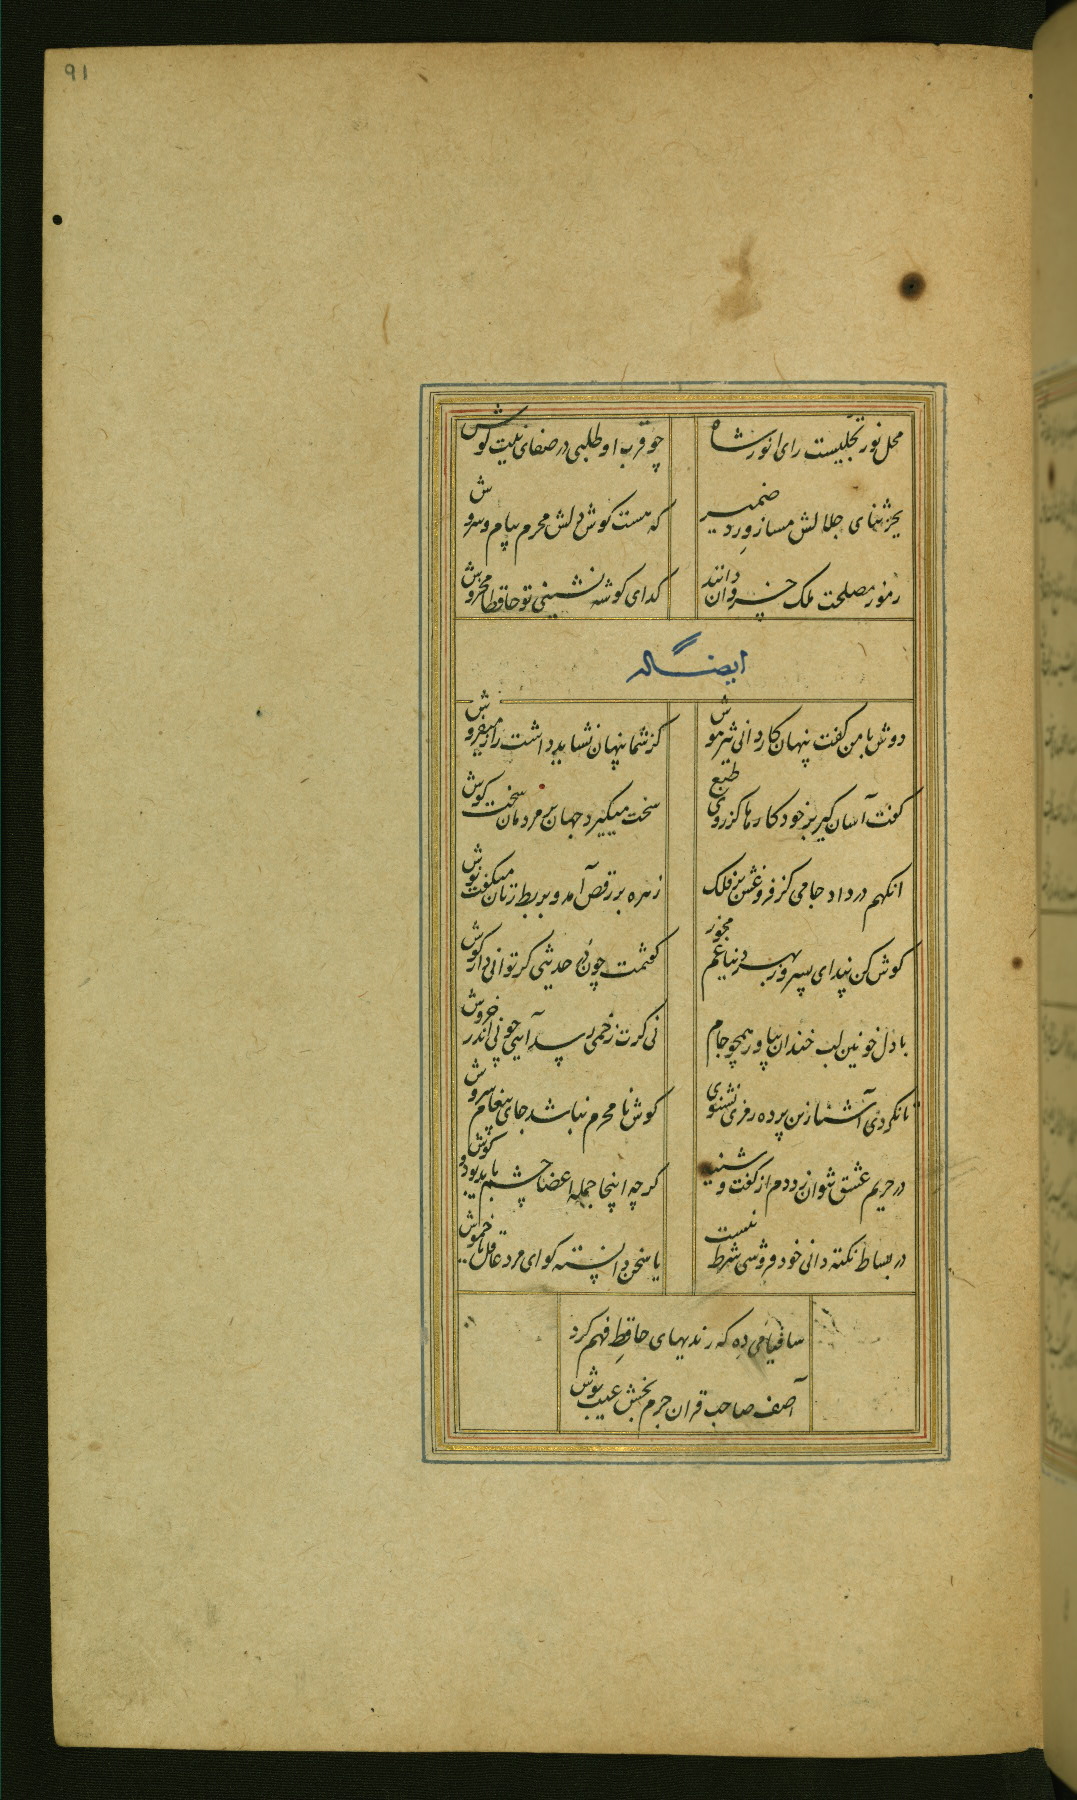 91
محل نور تجلیست رای انور شاه
چو قرب او طلبی در صفای نیت کوش
بجز ثنای جلالش مساز ورد ضمیر
که هست کوش دلش محرم پیام سروش
رموز مصلحت ملک خسروان دانند
کدای کوشه نشینی تو حافظا مخروش
ایضا له
دوش با من کفت پنهان کاردانی تیزهوش
کز شما پنهان نشاید داشت راز میفروش
کفت آسان کیر بر خود کارها کز روی طبع
سخت میکیرد جهان بر مردمان سخت کوش
انکهم درداد جامی کز فروغش بر فلک
زهره بر رقص آمد و بربط زنان میکفت نوش
کوش کن پند ای پسر وز بهر دنیا غم مخور
کفتمت چون در حدیثی کر توانی دار کوش
با دل خونین لب خندان بیاور همچو جام
نی کرت زخمی رسد آیی چو نی اندر خروش
تا نکردی آشنا زین پرده رمزی نشنوی
کوش نامحرم نباشد جای پیغام سروش
در حریم عشق نتوان زد دم از کفت و شنید
کرچه اینجا جمله اعضا چشم باید بود و کوش
در بساط نکته دانی خودفروشی شرط نیست
یا سخن دانسته کو ای مرد عاقل یا خموش
ساقیا می ده که رندیهای حافظ فهم کرد
آصف صاحب قران جرم بخش عیب پوش